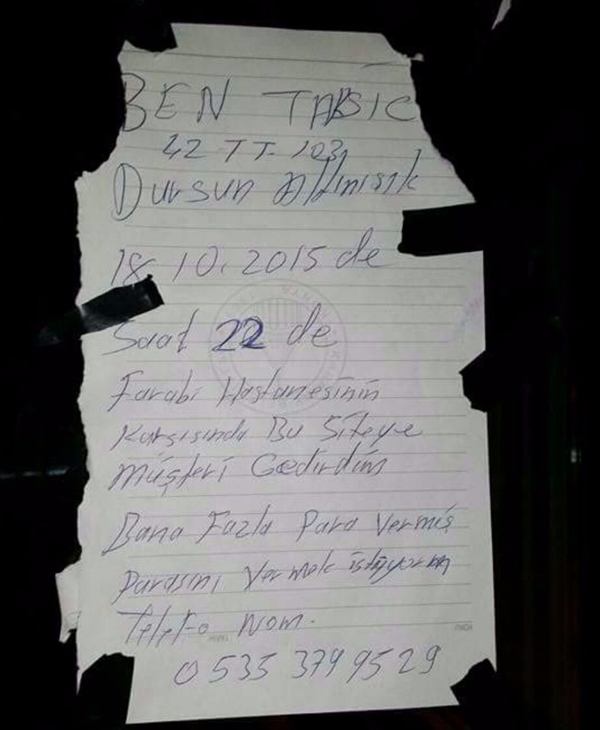 BEN TABSİC
42 TT. 103
Dursun
18.10.2015 de
Saat 22 de
Farabi Hastanesinin
Karşısında Bu Siteye
müşteri Gedirdim
Bana Fazla Para vermiş
Parasını Vermek istiyorum
Telefo Nom.
0535 379 9529